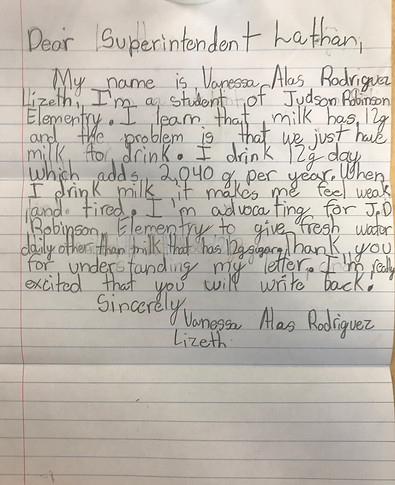 Dear Superintendent Lathan,
My name is Vanessa Alas Rodriguez
Lizeth, I'm a student of Judson Robinson
Elementry. I learn that milk has 12g
and the problem is that we just have
milk for drink. I drink 12g day
which adds 2,040 g per year. When
I drink milk it makes me feel weak
and tired. I'm advocating for J.D
Robinson Elementry to give fresh water
daily other than milk that has 12g sugare, Thank you
for understanding my letter. I'm really
excited that you will write back.
Sincerely
Vanessa Alas Rodriguez
Lizeth